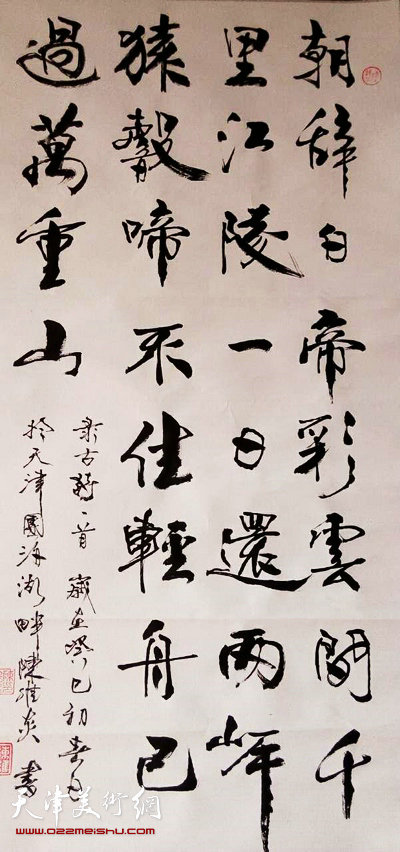 朝辞白帝彩雲間千
里江陵一日還兩岸
猿聲啼不住輕舟已
過萬重山
录古詩一首 歲在癸巳初春月
於天津團泊湖畔陳維炎書
天津美術網
www.022meishu.com